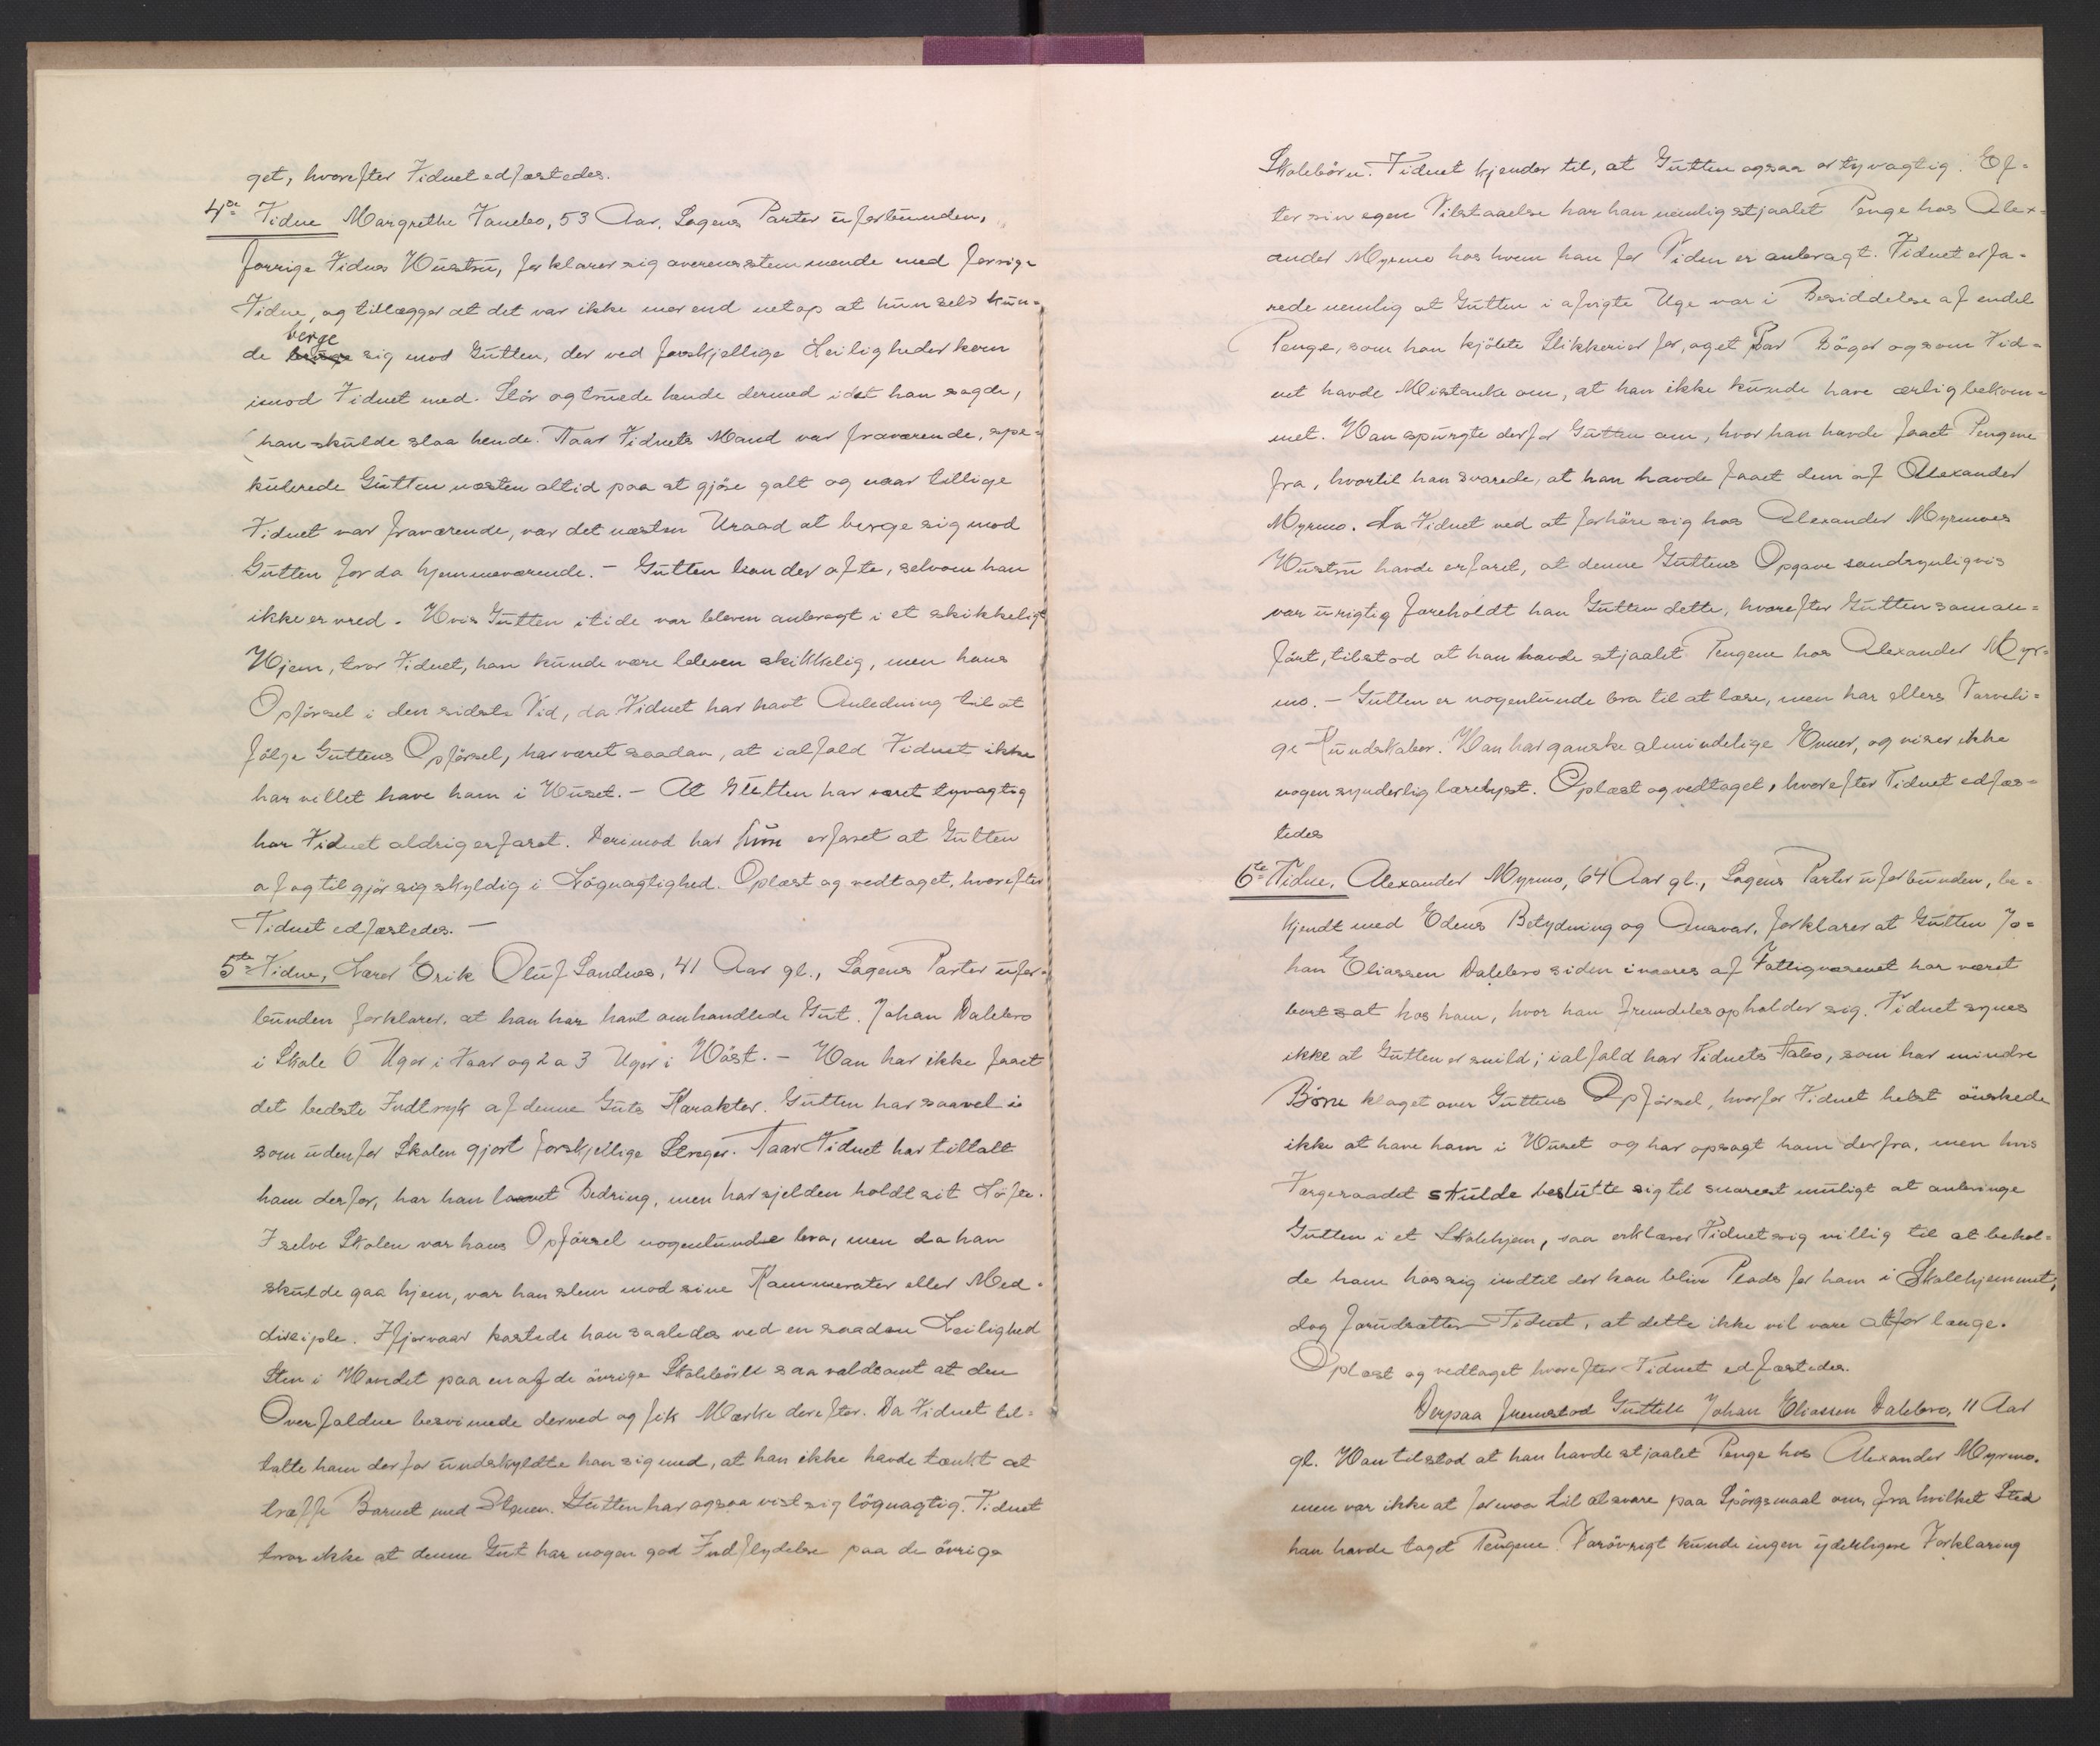 get, hvorefter Vidnet edfæstedes.
4de Vidne Margrethe Vanebo, 53 Aar, Sagens Parter uforbunden,
forrige Vidnes Hustru, forklarer sig overensstemmende med forrige
Vidne, og tillægger at det var ikke mer end netop at hun selv kun-
de berge sig mod Gutten, der ved forskjellige Leiligheder kom
imod Vidnet med Stör og truede hende dermed idet han sagde,
han skulde slaa hende. Naar Vidnets Mand var fraværende, spe-
kulerede Gutten næsten altid paa at gjöre galt og naar tillige
Vidnet var fraværende, var det næsten Uraad at berge sig mod
Gutten for da hjemmeværende. – Gutten bander ofte, selvom han
ikke er vred. Hvis Gutten itide var bleven anbragt i et skikkeligt
Hjem, tror Vidnet, han kunde være bleven skikkelig, men hans
Opförsel i den sidste Tid, da Vidnet har havt Anledning til at
fölge Guttens Opförsel, har været saadan, at ialfald Vidnet ikke
har villet have ham i Huset. – At Gutten har været tyvagtig
har Vidnet aldrig erfaret. Derimod har hun erfaret at Gutten
af og til gjör sig skyldig i Lögnagtighed. Oplæst og vedtaget, hvorefter
Vidnet edfæstedes. –
5te Vidne, Lærer Erik Oluf Sandnes, 41 Aar gl., Sagens Parter ufor-
bunden forklarer, at han har havt omhandlede Gut, Johan Dalebro
i Skole 6 Uger i Vaar og 2 a 3 Uger i Höst. – Han har ikke faaet
det bedste Indtryk af denne Guts Karakter. Gutten har saavel i
som udenfor Skolen gjort forskjellige Streger. Naar Vidnet har tiltalt
ham derfor, har han lovet Bedring, men har sjelden holdt sit Löfte.
I selve Skolen var hans Opförsel nogenlunde bra, men da han
skulde gaa hjem, var han slem mod sine Kammerater eller Med-
disciple. Ifjorvaar kastede han saaledes ved en saadan Leilighed
Sten i Hovedet paa en af de övrige Skolebörn saa voldsomt at den
Overfaldne besvimede derved og fik Mærke derefter. Da Vidnet til-
talte ham derfor undskyldte han sig med, at han ikke havde tænkt at
træffe Barnet med Stenen. Gutten har ogsaa vist sig lögnagtig. Vidnet
tror ikke at denne Gut har nogen god Indflydelse paa de övrige
Skolebörn. Vidnet kjender til, at Gutten ogsaa er tyvagtig. Ef-
ter sin egen Tilstaaelse har han nemlig stjaalet Penge hos Alex-
ander Myrmo hos hvem han for Tiden er anbragt. Vidnet erfa-
rede nemlig at Gutten i afvigte Uge var i Besiddelse af endel
Penge, som han kjöbte Slikkerier for, og et Par Böger og som Vid-
net havde Mistanke om, at han ikke kunde have ærlig bekom-
met. Han spurgte derfor Gutten om, hvor han havde faaet Pengene
fra, hvortil han svarede, at han havde faaet dem af Alexander
Myrmo. Da Vidnet ved at forhöre sig hos Alexander Myrmoes
Hustru havde erfaret, at denne Guttens Opgave sandsynligvis
var urigtig foreholdt han Gutten dette, hvorefter Gutten som an-
fört, tilstod at han havde stjaalet Pengene hos Alexander Myr-
mo. – Gutten er nogenlunde bra til at læse, men har ellers tarveli-
ge Kundskaber. Han har ganske almindelige Evner, og viser ikke
nogen synderlig lærelyst. Oplæst og vedtaget, hvorefter Vidnet edfæs-
tedes
6te Vidne, Alexander Myrmo, 64 Aar gl., Sagens Parter uforbunden, be-
kjendt med Edens Betydning og Ansvar, forklarer at Gutten Jo-
han Eliassen Dalebro siden ivaares af Fattigvæsenet har været
bortsat hos ham, hvor han fremdeles opholder sig. Vidnet synes
ikke at Gutten er snild; ialfald har Vidnets Nabo, som har mindre
Börn klaget over Guttens Opförsel, hvorfor Vidnet helst önskede
ikke at have ham i Huset og har opsagt ham derfra, men hvis
Værgeraadet skulde beslutte sig til snarest muligt at anbringe
Gutten i et Skolehjem, saa erklærer Vidnet sig villig til at behol-
de ham hos sig indtil der kan blive Plads for ham i Skolehjemmet;
dog forudsætter Vidnet, at dette ikke vil vare altfor længe.
Oplæst og vedtaget hvorefter Vidnet edfæstedes.
Derpaa fremstod Gutten Johan Eliassen Dalebro, 11 Aar
gl. Han tilstod at han havde stjaalet Penge hos Alexander Myrmo.
men var ikke at formaa til at svare paa Spörgsmaal om, fra hvilket Sted
han havde taget Pengene. Forövrigt kunde ingen yderligere Forklaring